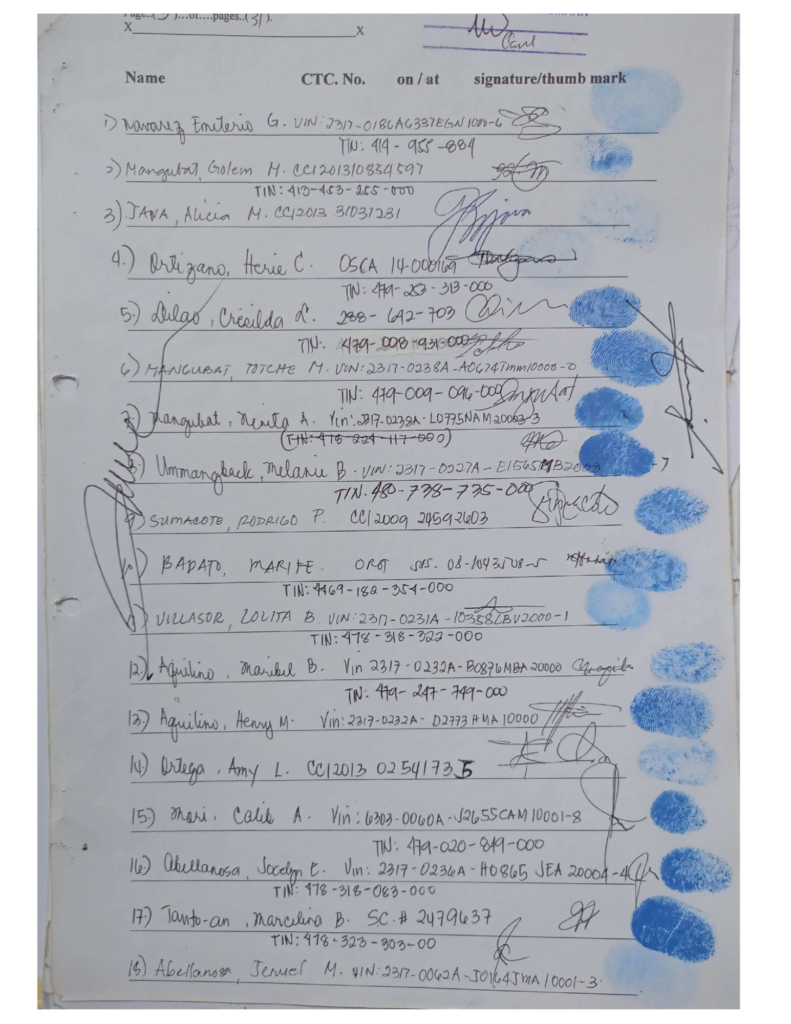 Page..( 5 )...of....pages..(31).
X X
Name CTC. No. on / at signature/thumb mark
1) Navarez Emiterio G. VIN: 2317-0186A6337EGN1000-6
TIN: 414-955-884
2) Mangubat, Golem M. CCI201310834597
TIN: 413-453-255-000
3) JAVA, Alicia M. CCI2013 31031281
4.) Ortizano, Herie C. OSCA 14-000169
TIN: 479-253-313-000
5.) Dilao, Cresilda L. 288-642-703
TIN: 479-008-931-000
6) MANGUBAT, TOTCHE M. VIN: 2317-0238A-A0674Tmm10000-0
TIN: 479-009-096-000
7.) Mangubat, Nenita A. Vin: 2317-0238A-L0775NAM20003-3
(TIN: 418-224-117-000)
8.) Ummangback, Melanie B. VIN: 2317-0227A-E1565MB2000 -7
TIN. 480-738-735-000
9) SUMACOTE, RODRIGO P. CCI2009 24592603
10.) BADATO, MARIFE. OROT SSS. 08-1043508-5
TIN: 4469-182-354-000
VILLASOR, LOLITA B. VIN: 2317-0231A-10358LBV2000-1
TIN: 478-318-322-000
12.) Aquilino, Maribel B. Vin 2317-0232A-B0876MBA20000
TIN: 479-247-749-000
13.) Aquilino, Henry M. Vin: 2317-0232A-D2773HMA10000
14.) Ortega, Amy L. CCI2013 02541735
15.) Mari, Calib A. Vin: 6303-0060A-J2655CAM10001-8
TIN: 479-020-849-000
16.) Abellanosa, Jocelyn E. Vin: 2317-0236A-H0865 JEA 20004-4
TIN: 478-318-083-000
17.) Tanto-an, Marcelina B. SC.# 2479637
TIN: 478-323-303-00
18) Abellanosa, Jeruel M. VIN: 2317-0062A-J0164JMA10001-3